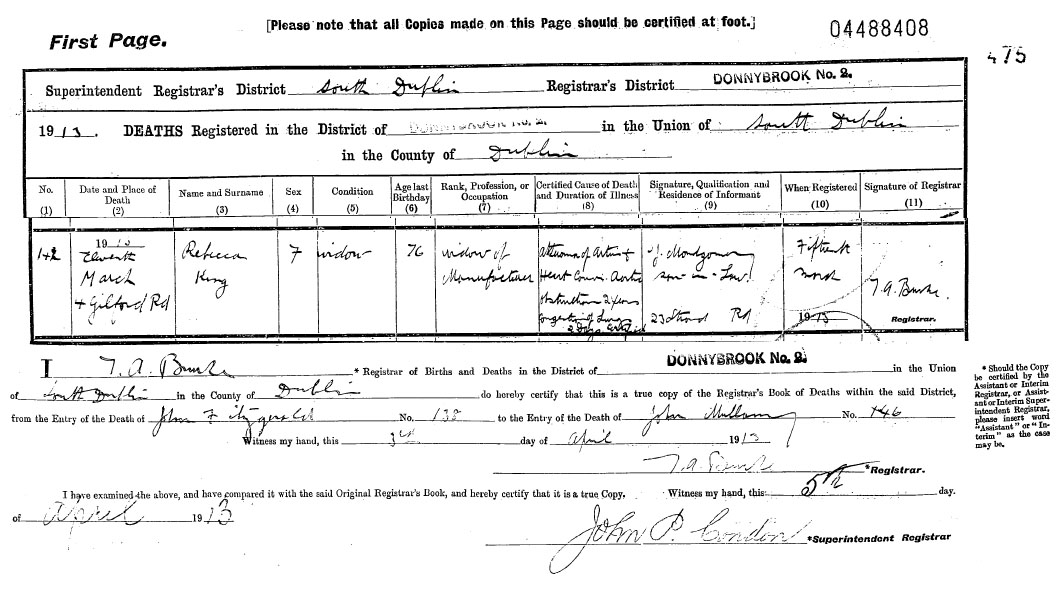 [Please note that all Copies made on this Page should be certified at foot.]
04488408
First Page.
475
Superintendent Registrar's District South Dublin Registrar's District DONNYBROOK No. 2.
1913. DEATHS Registered in the District of DONNYBROOK No. 2. in the Union of South Dublin
in the County of Dublin
No. (1)
Date and Place of Death (2)
Name and Surname (3)
Sex (4)
Condition (5)
Age last Birthday (6)
Rank, Profession, or Occupation (7)
Certified Cause of Death and Duration of Illness (8)
Signature, Qualification and Residence of Informant (9)
When Registered (10)
Signature of Registrar (11)
142
1913
Eleventh
March
4 Gilford Rd
Rebecca
King
F
widow
76
widow of
Manufacturer
Atheroma of Arteries
Heart Aortic
obstruction 2 years
Congestion of Lungs
2 Days Certified
J. Montgomery
son-in-Law
23 Strand Rd
Fifteenth
March
1913
T. A. Burke.
Registrar.
I T. A. Burke * Registrar of Births and Deaths in the District of DONNYBROOK No. 2. in the Union
of South Dublin in the County of Dublin do hereby certify that this is a true copy of the Registrar's Book of Deaths within the said District,
from the Entry of the Death of John Fitzgerald No. 138 to the Entry of the Death of John No. 146
Witness my hand, this 3rd day of April 1913
T. A. Burke *Registrar.
* Should the Copy
be certified by the
Assistant or Interim
Registrar, or Assist-
ant or Interim Super-
intendent Registrar,
please insert word
"Assistant" or "In-
terim" as the case
may be.
I have examined the above, and have compared it with the said Original Registrar's Book, and hereby certify that it is a true Copy. Witness my hand, this 5th day.
of April 1913
John P. Condon *Superintendent Registrar